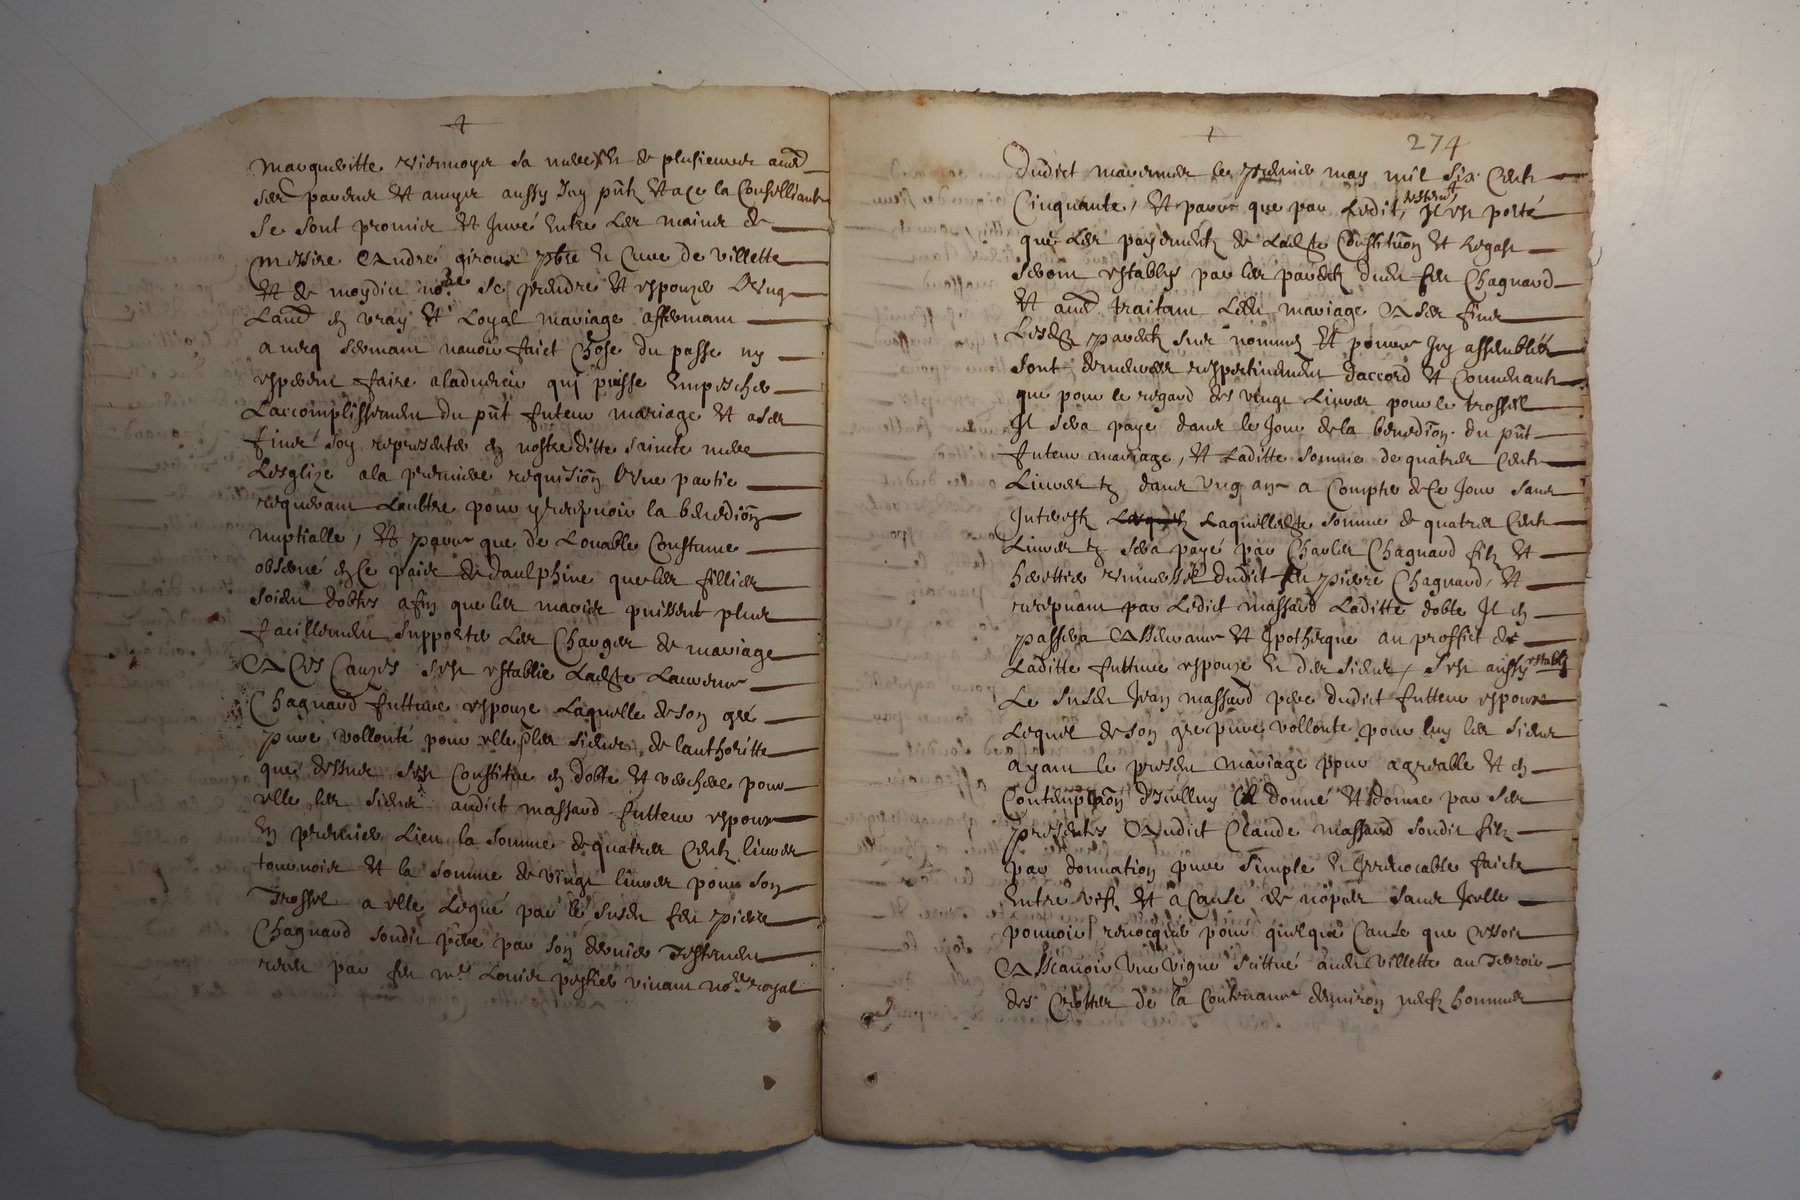 Margueritte Viermoyer sa mere et de plusieurs aud
ses parens et amys aussy icy pnts et a ce la conseillants
se sont promis et juré entre les mains de
messire André giroux pbre et cure de villette
et de moydict no.re se prendre et espouzer l'ung
laud en vray et loyal mariage affermant
avecq sermant navoir faict chose du passe ny
esperent faire aladvenir qui puisse empescher
laccomplissement du pnt futeur mariage et a ses
fins soy representer en nostreditte saincte mere
lesglize a la premiere requision l'une partie
requerant laultre pour y recepvoir la benedion
nuptialle, et parce que de louable coustume
observé en ce pais de daulphine que les filles
soient dobtes affin que les maris puissent plus
facillement supporter les charges de mariage
A ces causes sest establie ladte Laurence
Chagnard futture espouze laquelle de son gré
pure vollonté pour elle et les siens, de lauthoritte
que dessus sest constitue en dobte et verchere pour
elle les siens audict massard futteur espoux
en premier lieu la somme de quatres cents livres
tournois et la somme de vingt livres pour son
Trossel a elle legué par le susdt feu pierre
Chagnard sondit pere par son dernier testement
receu par feu me Louis peytier vivant no.re royal
274
Dudict mavermes les premier may mil six cents
Cinquante, et parce que par ledit testemt il est porté
que les payements de ladte constituon et legat
seront establys par les parents dudt feu Chagnard
et aud traitant ledt mariage A ses fins
lesdts parents sus nommes et pour icy assemblés
sont demeures respectivement daccord et convenants
que pour le regard des vingt livres pour le trossel
il sera paye dans le jour de la benedion du pnt
futeur mariage, et laditte somme de quatres cents
livres tz dans ung an a compter de ce jour sans
interestz laquelle dte somme de quatres cents
livres tz sera payé par Charles Chagnard filz et
herettier universel dudict feu pierre Chagnard, et
recepvant par ledict massard laditte dobte il en
passera Asseurance et ipotheque au proffict de
laditte future espouze et des siens, sest aussy estably
le susdt Jean massard pere dudict futteur espoux
lequel de son gre pure vollonte pour luy les siens
ayant le present mariage pour agreable et en
contemplaon dicelluy a donné et donne par ses
presentes Audict Claude massard sondit filz
par donnation pure simple et irrevocable faicte
entre vifz et a cause de nopces sans icelle
pouvoir revocquer pour quelque cause que ce soit
Asscavoir une vigne scittué audt villette au terroir
des Crottes de la contenance denviron neufz hommes